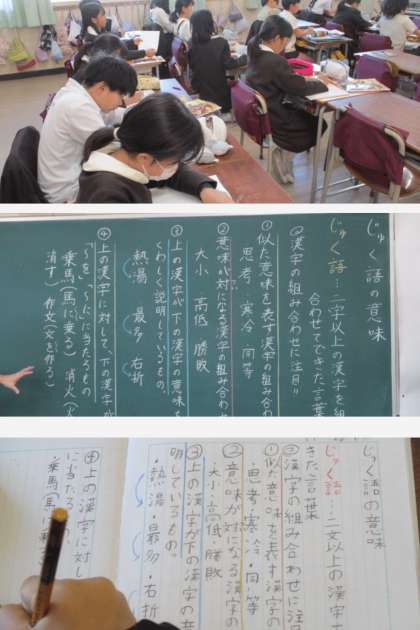 じゅく語の意味
じゅく語…二字以上の漢字を組
合わせてできた言葉
◎漢字の組み合わせに注目!!
①似た意味を表す漢字の組み合わ
思考・寒冷 同等
②意味が対になる漢字の組み合わ
大小 高低 勝敗
③上の漢字が下の漢字の意味を
くわしく説明しているもの。
熱湯 最多 右折
④上の漢字に対して、下の漢字が
「〜を」「〜に」に当たるもの
乗馬(馬に乗る) 消火(火
消す) 作文(文を作る)
じゅく語の意味
じゅく語…二文以上の漢字
きた言葉
◎漢字の組み合わせに注目
①似た意味を表す漢字の
・思考・寒冷・同等
②意味が対になる漢字の
・大小・高低・勝敗
③上の漢字が下の漢字の意
明しているもの。
・熱湯・最多・右折
④上の漢字に対し
に当たる
・乗馬(馬